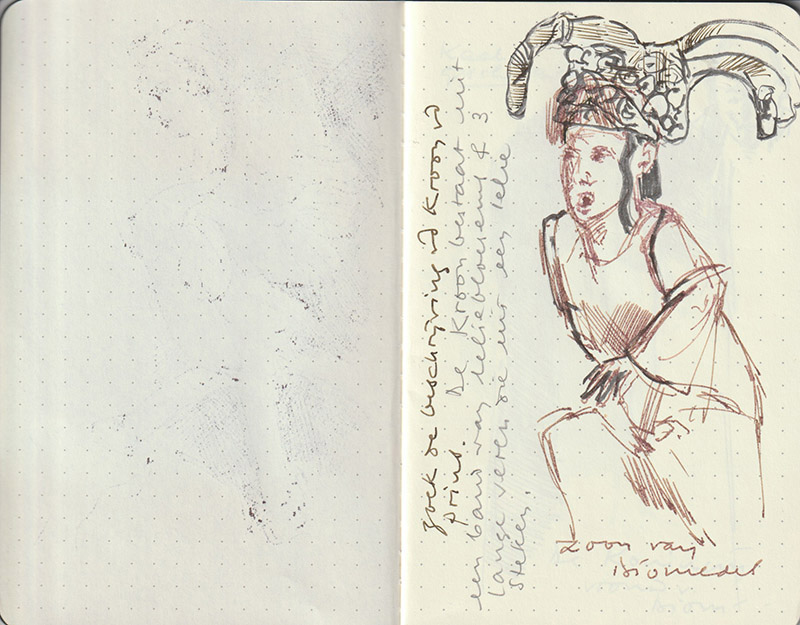 zoek de beschrijving vd Kroon vd
prins. De Kroon bestaat uit
een band van leliebloesems & 3
lange veren die uit een lelie
steken.
Zoon van
Diomedes